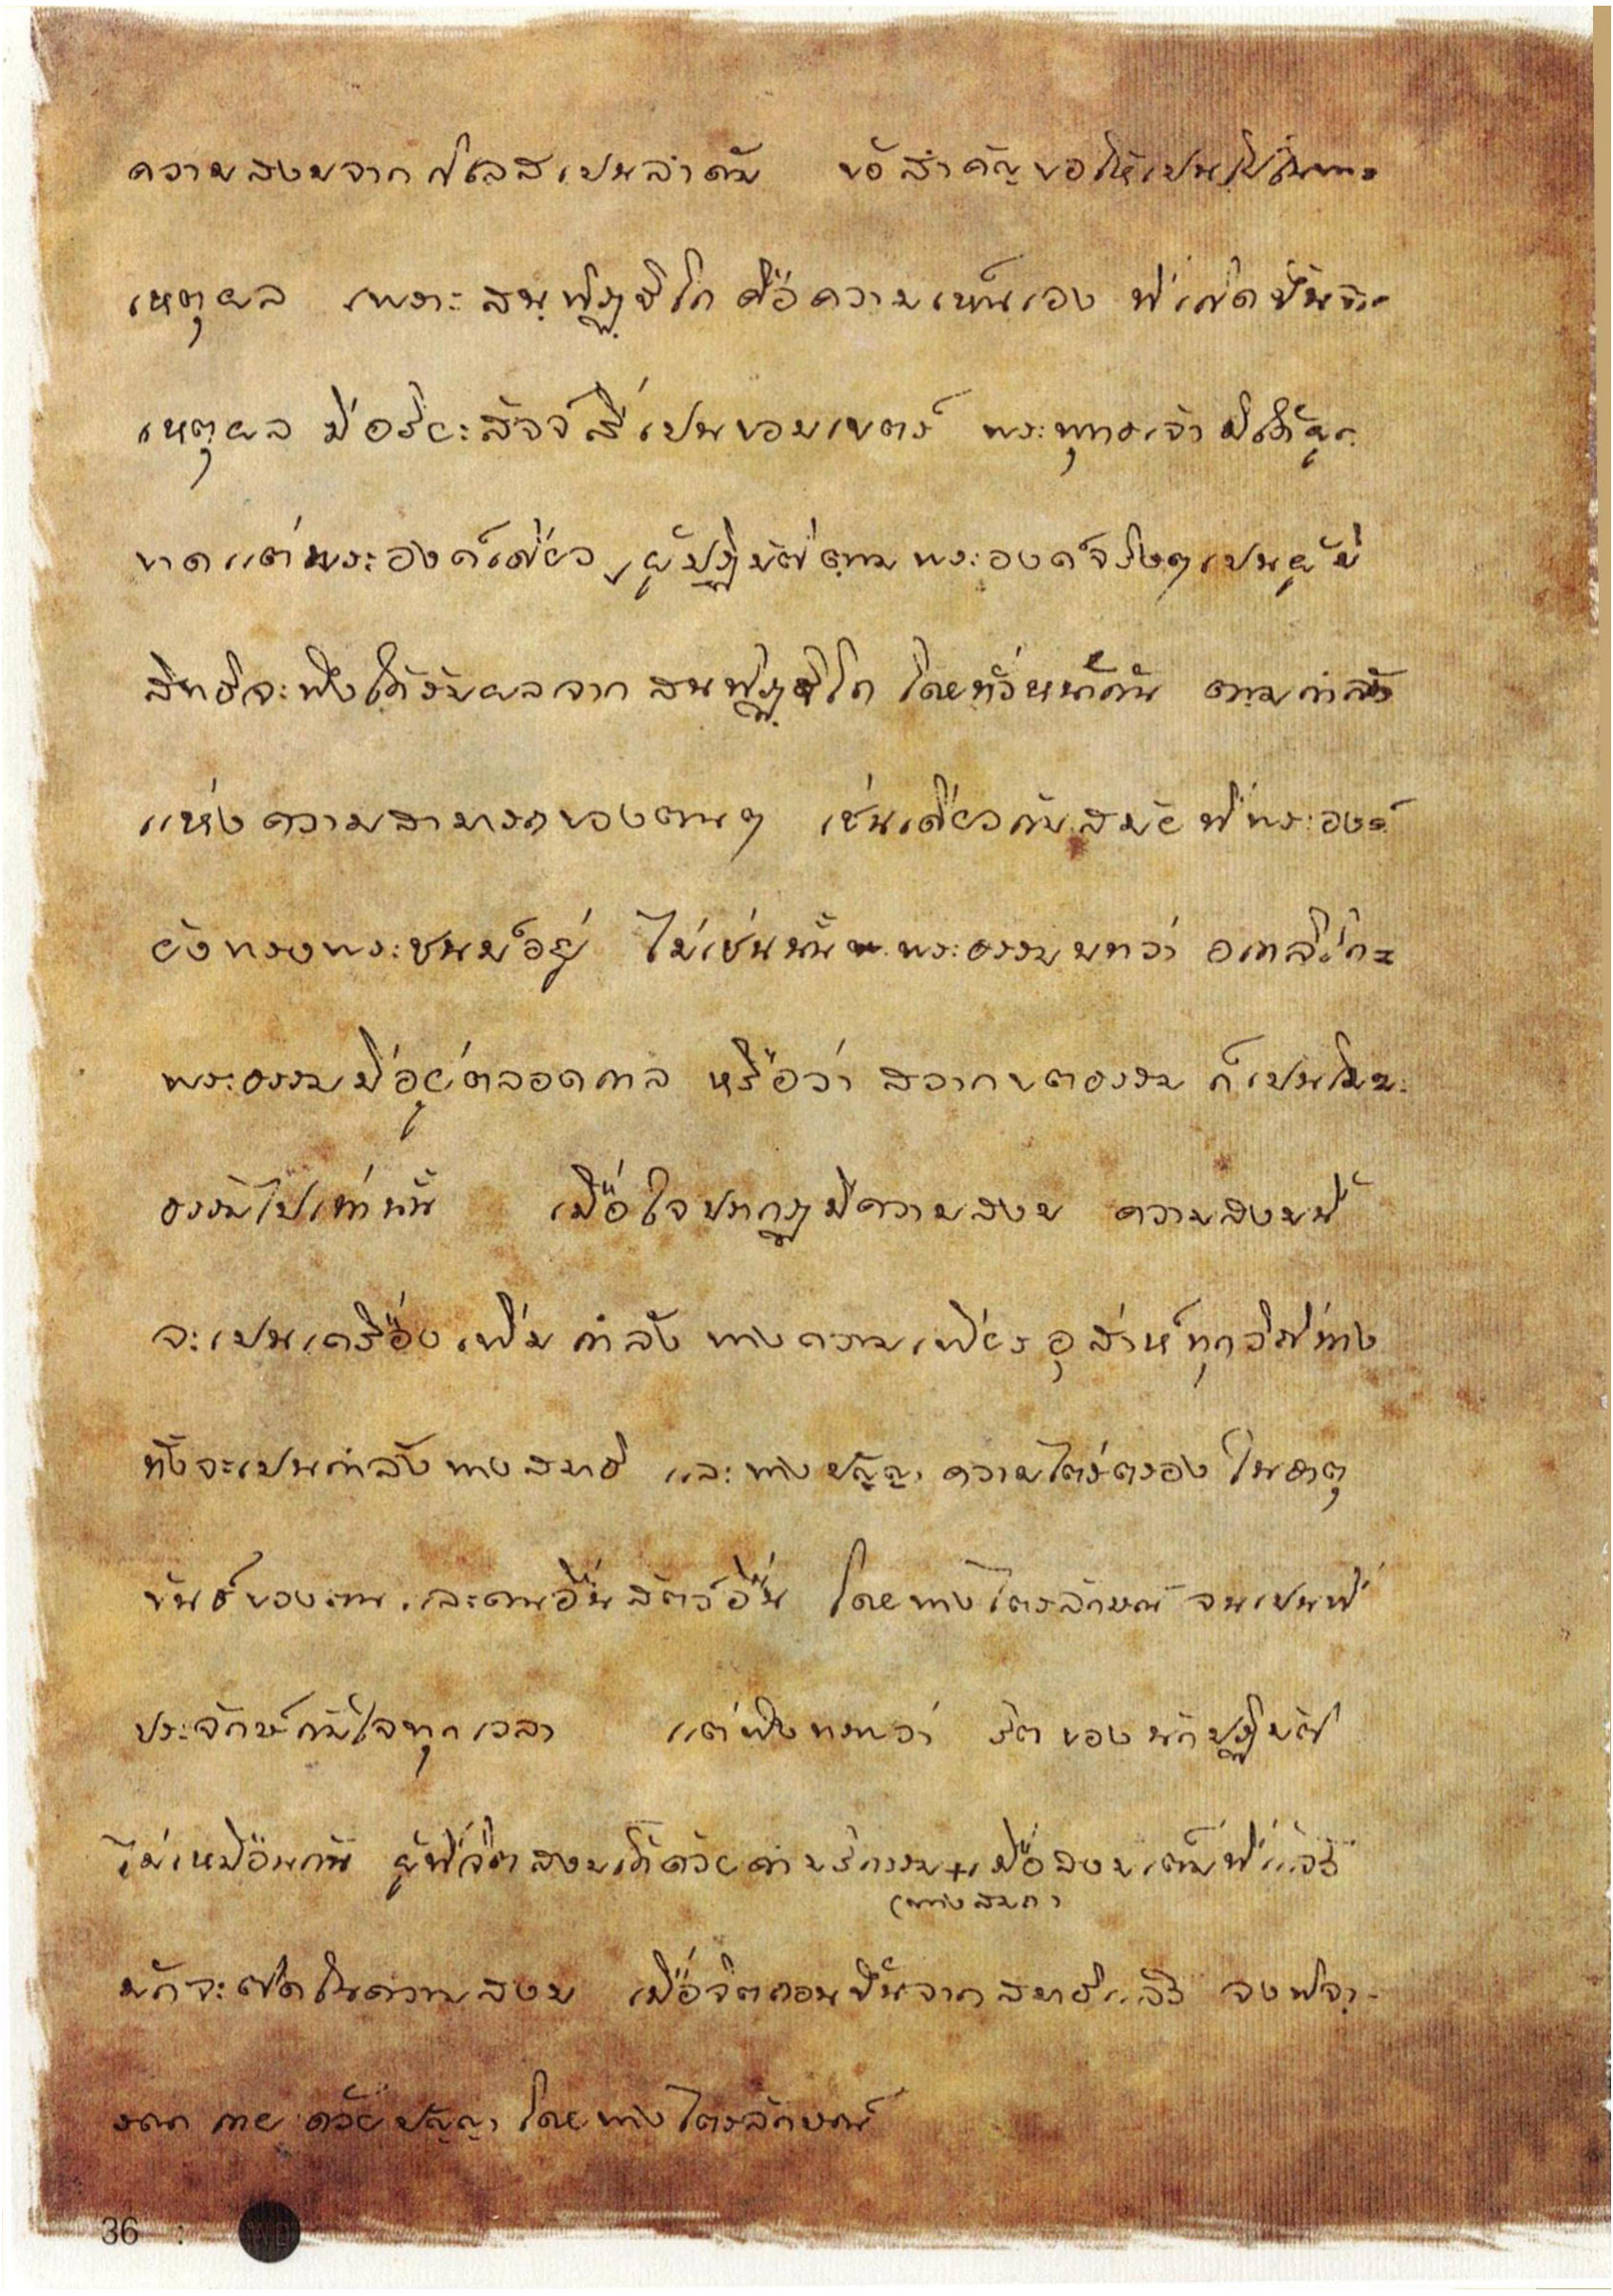 ความสงบจากกิเลสเปนลำดับ ข้อสำคัญขอให้เปนไปในทาง
เหตุผล เพราะสนฺทิฏฺฐิโก คือความเห็นเอง ที่เกิดขึ้นจาก
เหตุผล มีอริยะสัจจ์สี่เปนขอบเขตร์ พระพุทธเจ้ามิได้ผูก
ขาดแต่พระองค์เดียว ผู้ปฏิบัติตามพระองค์จริงๆเปนผู้มี
สิทธิจะพึงได้รับผลจาก สนฺทิฏฺฐิโก โดยทั่วหน้ากัน ตามกำลัง
แห่งความสามารถของตนๆ เช่นเดียวกับสมัยที่พระองค์
ยังทรงพระชนม์อยู่ ไม่เช่นนั้น พระธรรมบทว่า อกาลิโก=
พระธรรมมีอยู่ตลอดกาล หรือว่า สวากขตธรรม ก็เปนโมฆะ
ธรรมไปเท่านั้น เมื่อใจปรากฏมีความสงบ ความสงบนี้
จะเปนเครื่องเพิ่มกำลัง ทางความเพียรอุส่าห์ทุกวิถีทาง
ทั้งจะเปนกำลังทางสมาธิ และทางปัญฺญา ความไตร่ตรองในธาตุ
ขันธ์ของตน และคนอื่นสัตว์อื่น โดยทางไตรลักษณ์ จนเปนที่
ประจักษ์กับใจทุกเวลา แต่พึงทราบว่า จริตของนักปฏิบัติ
ไม่เหมือนกัน ผู้ที่จิตสงบได้ด้วยคำบริกรรม+เมื่อสงบเต็มที่แล้ว
(ทางสมถ)
มักจะติดในความสงบ เมื่อจิตถอนขึ้นจากสมาธิแล้ว จงพิจา-
รณา กาย ด้วยปัญฺญา โดยทางไตรลักษณ์
36 :